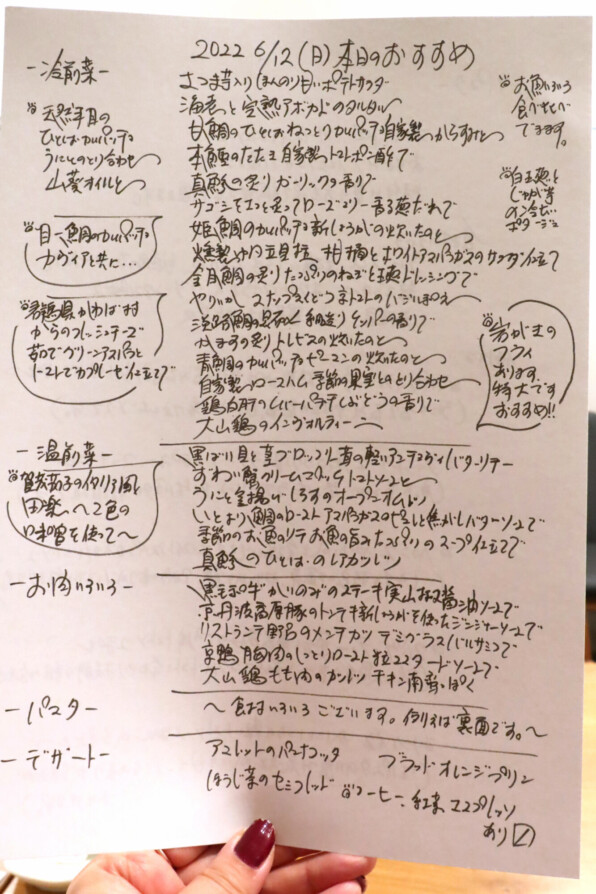 2022 6/12(日)本日のおすすめ
ー冷前菜ー
さつま芋入りほんのり甘いポテトサラダ
海老と完熟アボカドのタルタル
甘鯛のひとしおねっとりカルパッチョ自家製からすみと
本鮪のたたき自家製トマトポン酢で
真鯵の炙りガーリックの香りで
サゴシをさっと炙ってローズマリー香る葱だれで
姫鯛のカルパッチョ新しょうがの炊いたのと
燻製や内立貝柱 柑橘とホワイトアスパラガスのサラダ仕立て
金目鯛の炙りたっぷりのねぎと玉葱ドレッシングで
やりいか スナップえんどうとトマトの
淡路鯛の昆布〆 ケッパーの香りで
かますの炙りトレビスの炊いたのと
青鯛のカルパッチョピーマンの炊いたのと
自家製ロースハム季節の果実とのとり合わせ
鶏白肝のレバーパテぶどうの香りで
大山鶏のインヴォルティーニ
天然平目の
ひとしおカルパッチョ
うにとのとり合わせ
山葵オイルと
目一鯛のカルパッチョ
キャヴィアと共に…
からのフレッシュチーズ
茹でグリーンアスパラと
トマトでカプレーゼ仕立てで
お魚いろいろ
食べせくらべ
できます。
白玉葱と
じゃが芋
の冷たい
ポタージュ
岩がきの
フライ
あります
特大です
おすすめ!!
ー温前菜ー
黒ばい貝と茎ブロッコリー 茸の軽いアンチョヴィバターソテー
ずわい蟹クリームコロッケトマトソースと
うにと釜揚げしらすのオープンオムレツ
いとより鯛のローストアスパラガスのピュレと焦がしバターソースで
季節のお魚のソテお魚の旨みたっぷりのスープ仕立てで
真鯵のひとしおのレアカツレツ
賀茂茄子のイタリア風
田楽へ2色の
味噌を使って〜
ーお肉いろいろー
黒毛和牛かいのみのステーキ実山椒醤油ソースで
京丹波高原豚のトンテキ新しょうがを使ったジンジャーソースで
リストランテ野呂のメンチカツ デミグラスバルサミコで
京鴨胸肉のしっとりロースト粒マスタードソースで
大山鶏もも肉のカツレツ チキン南蛮っぽく
ーパスター
〜食材いろいろございます。例えば裏面です。〜
ーデザートー
アマレットのパンナコッタ
ブラッドオレンジプリン
ほうじ茶のセミフレッド
コーヒー、紅茶、エスプレッソ
あり